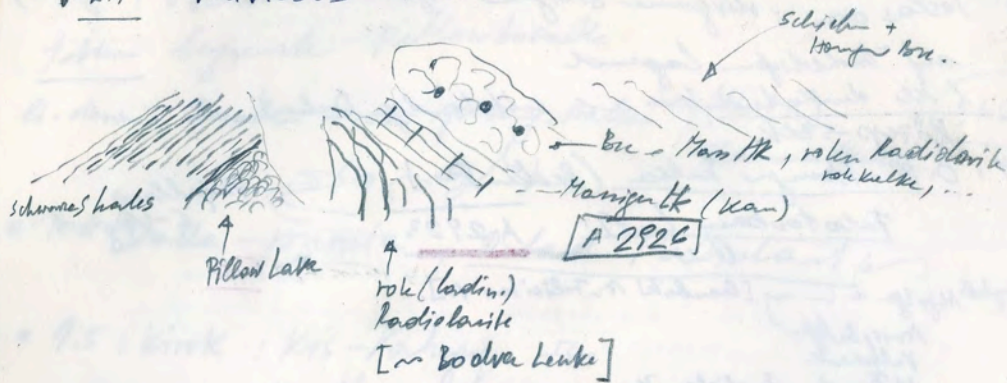 Schiefer +
Horngr Brc...
Brc - Mass HK, roter Radiolarit
rote kalke, ...
Massiger Hk (Karn)
A 2926
schwarze Shales
Pillow Lava
rote (ladin.)
Radiolarite
[~ Bodva Lenke]